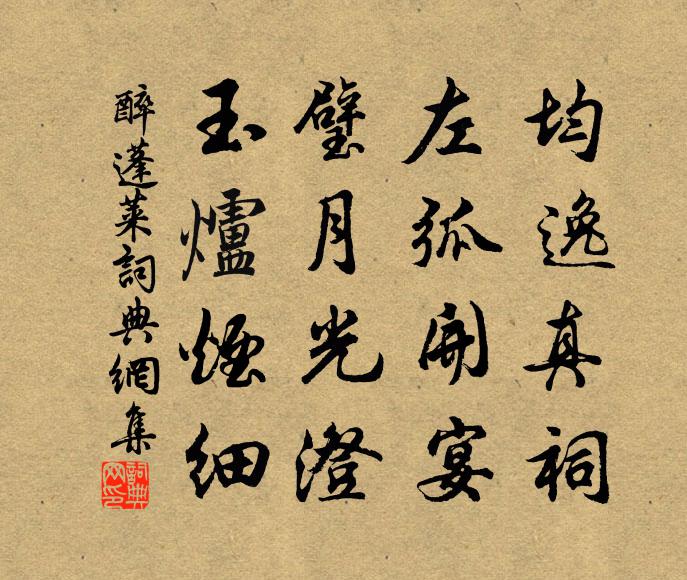 均逸真祠
左弧開宴
璧月光澄
玉爐煙細
醉蓬萊詞典網集
詞典網印